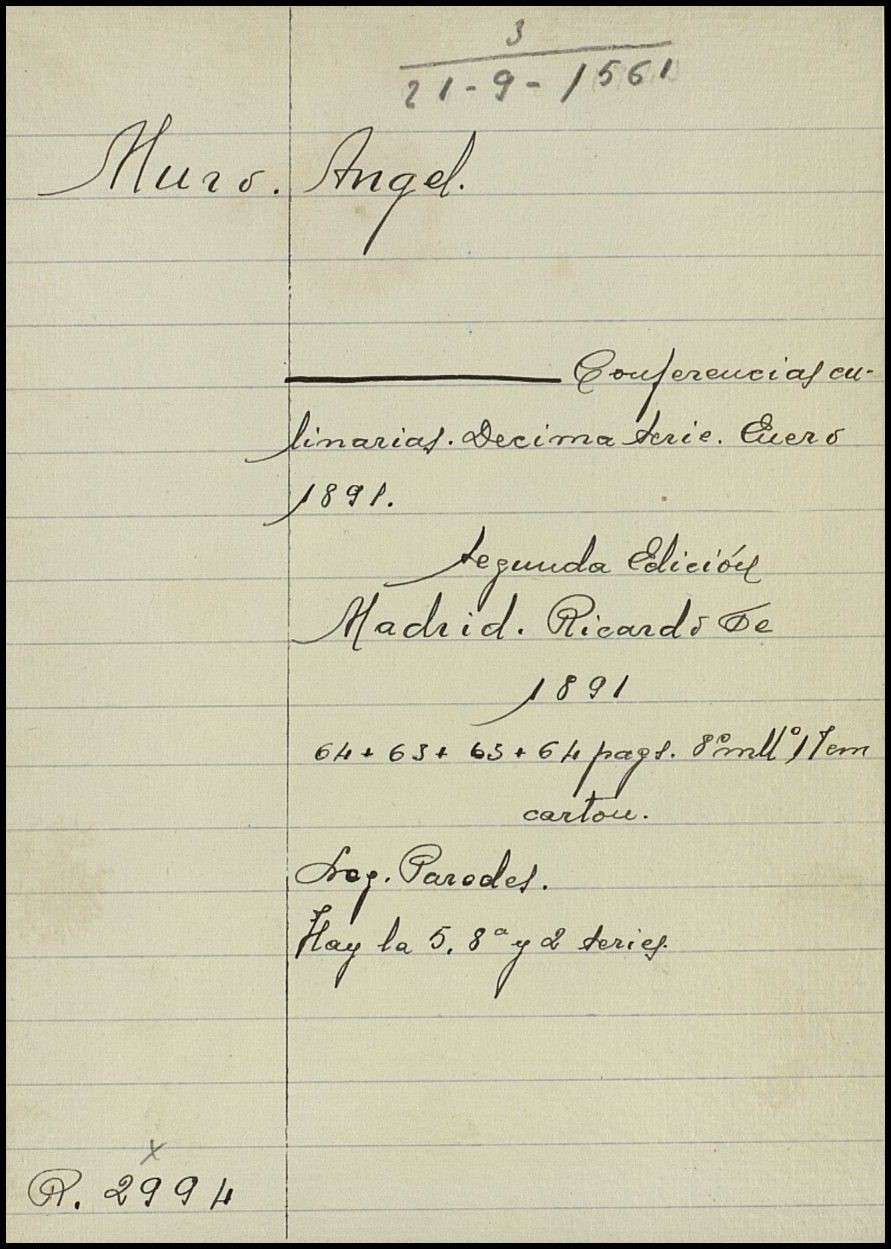 3
21-9-1561
Muro. Angel.
Conferencias cu-
linarias. Decima serie. Enero
1891.
Segunda Edición
Madrid. Ricardo Fe
1891
64 + 63 + 63 + 64 pags. 8º mllº 17 cm
carton.
Leg. Paredes.
Hay la 5, 8ª y 2 series.
x
R. 2994